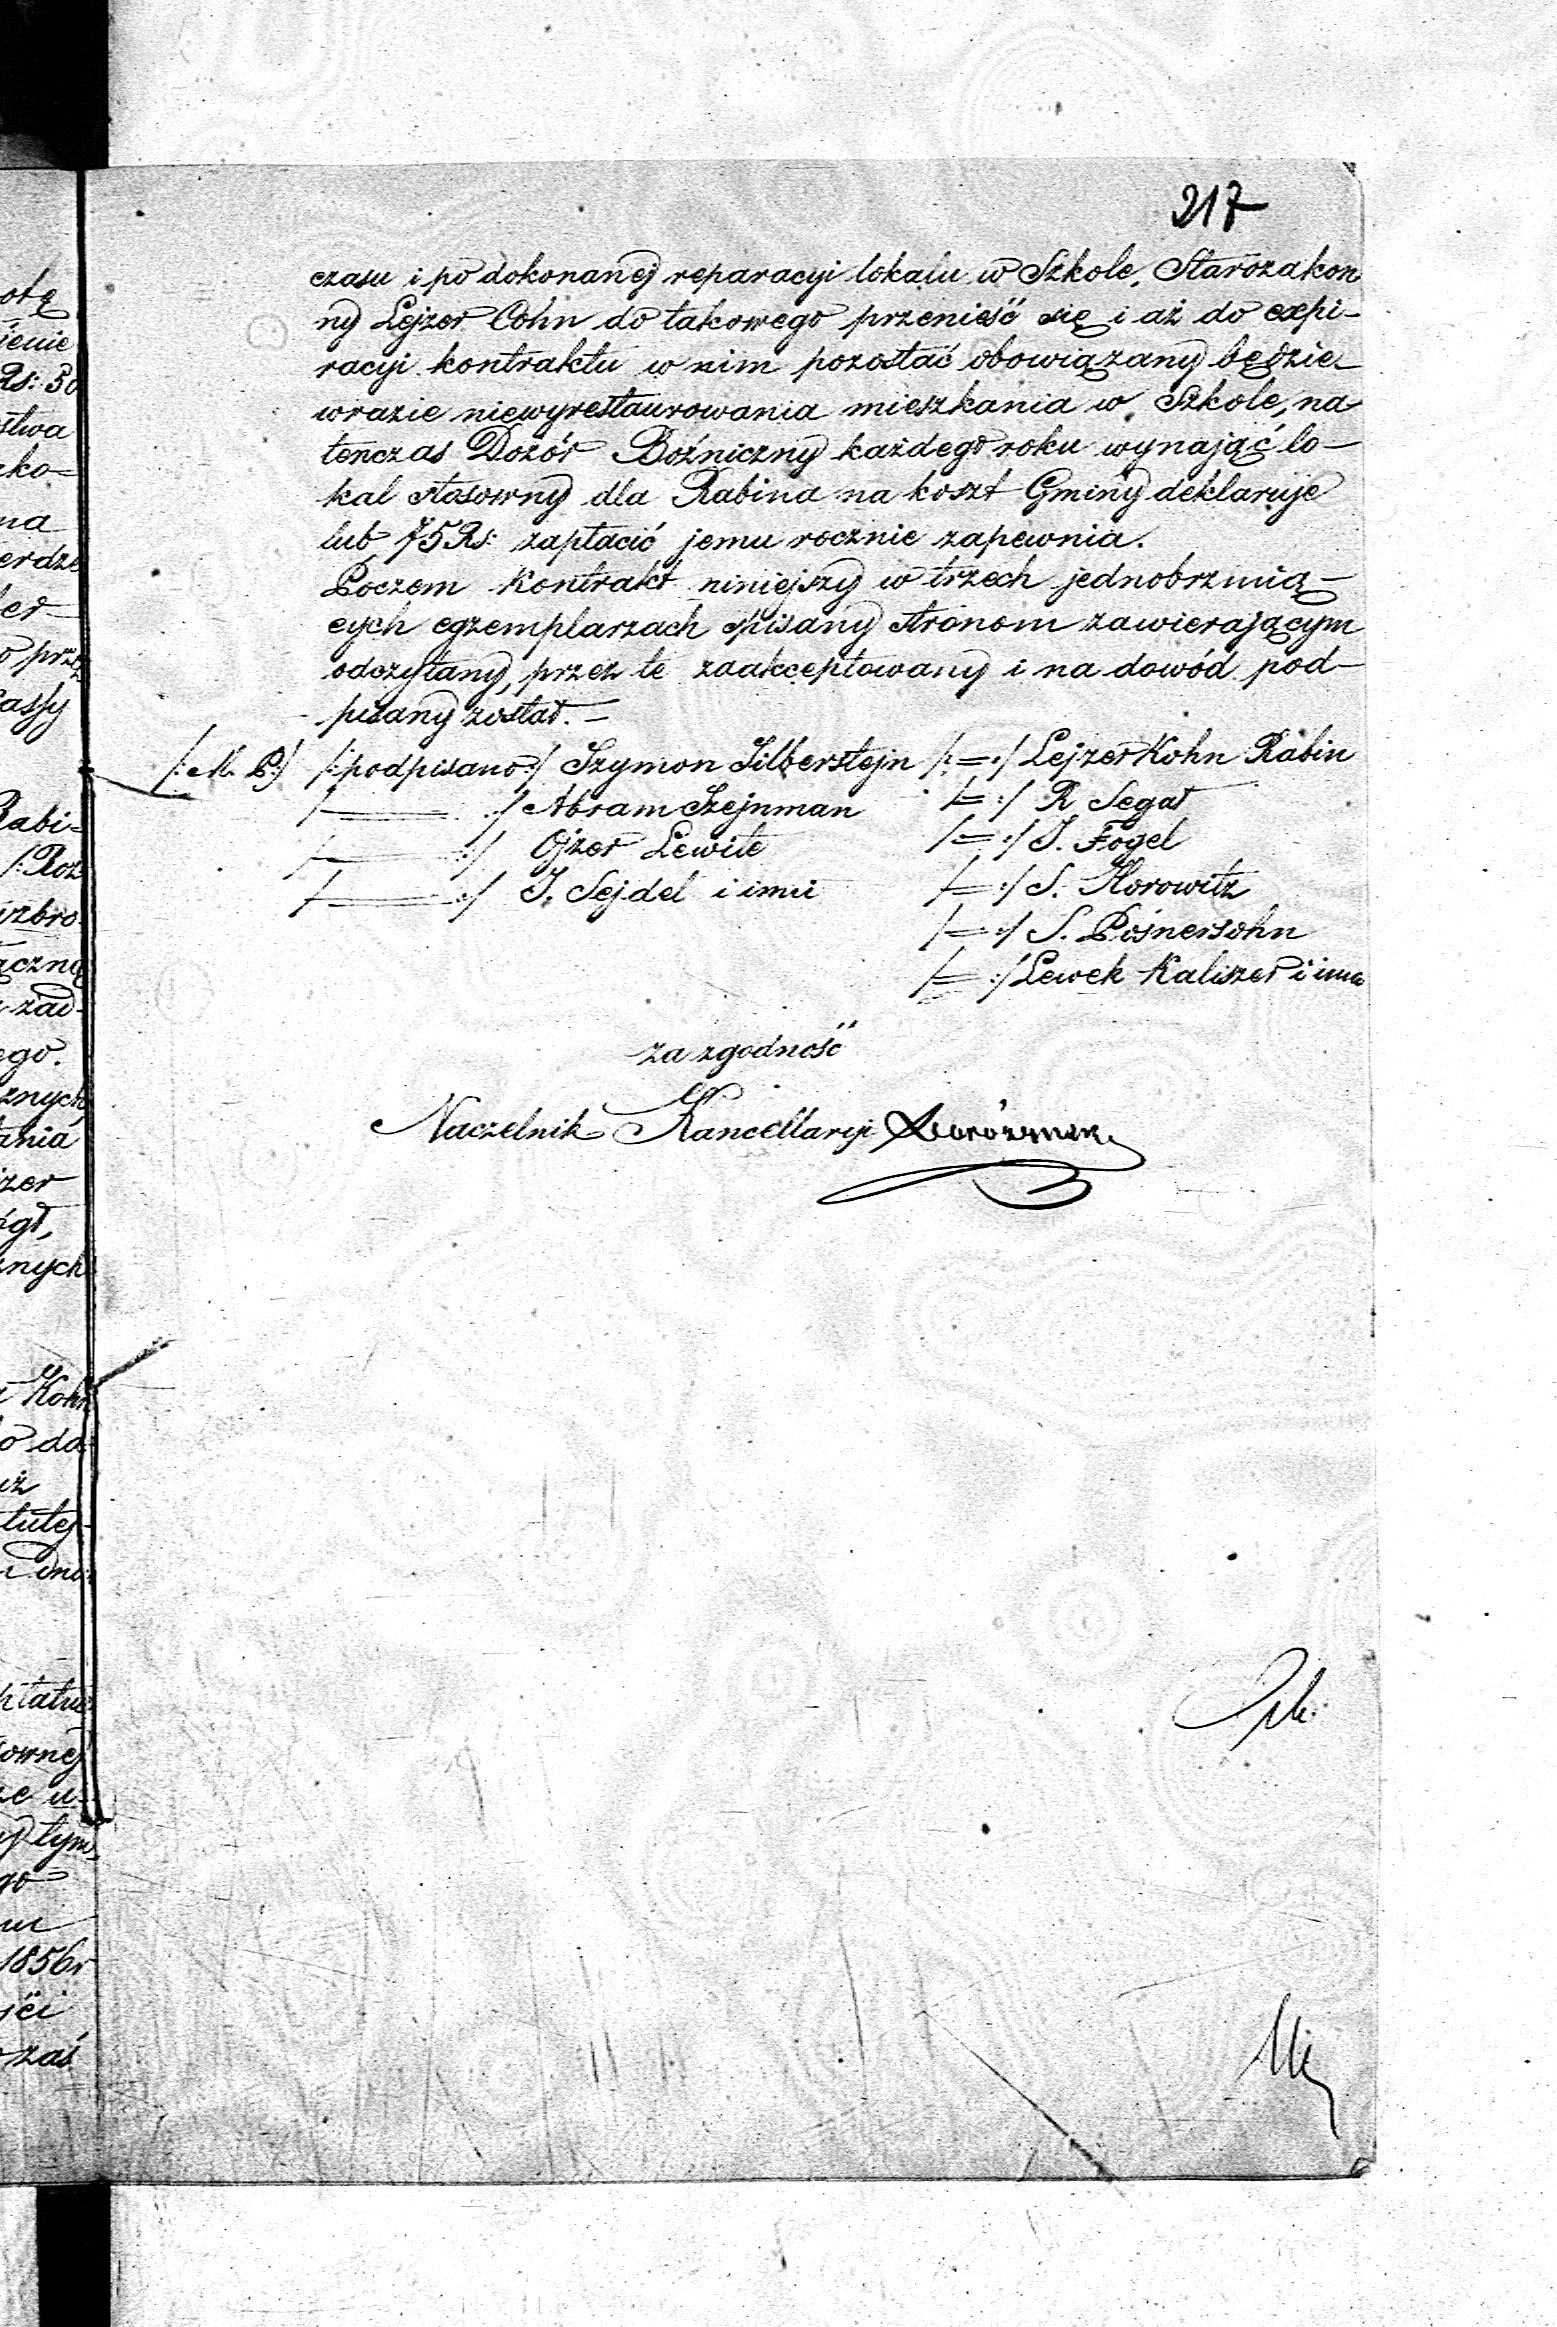 217
czasu i po dokonanej reparacyi lokalu w Szkole, Starozakon
ny Lejzer Cohn do takowego przenieść się i aż do expi-
racyi kontraktu w nim pozostać obowiązany będzie
wrazie niewyrestaurowania mieszkania w Szkole, na
tenczas Dozór Bożniczny każdego roku wynająć lo-
kal stosowny dla Rabina na koszt Gminy deklaruje
lub 75 Rs: zapłacić jemu rocznie zapewnia.
Poczem kontrakt niniejszy w trzech jednobrzmią-
cych egzemplarzach spisany stronom zawierającym
odczytany, przez te zaakceptowany i na dowód pod-
pisany został. –
/: M. P:/ /:podpisano:/ Szymon Silberstejn /:=:/ Lejzer Kohn Rabin
/: = :/ Abram Szejnman /:=:/ R Segał
/: = :/ Ojzer Lewite /:=:/ J. Fogel
/: = :/ J. Sejdel i inni /:=:/ S. Horowitz
/:=:/ S. Posnersohn
/:=:/ Lewek Kaliszer i inni
za zgodność
Naczelnik Kancellaryi
otę
jenie
Rs: 30
stwa
ko=
na
erdze
er-
o prze
assy
Rabi=
/:Roz
zbro
ączną
zad-
ego.
znych
ania
zer
ągł,
znych
Kohn
o da-
uż
tutej-
ownej
ze u-
tym,
go
1856r
ści
zaś